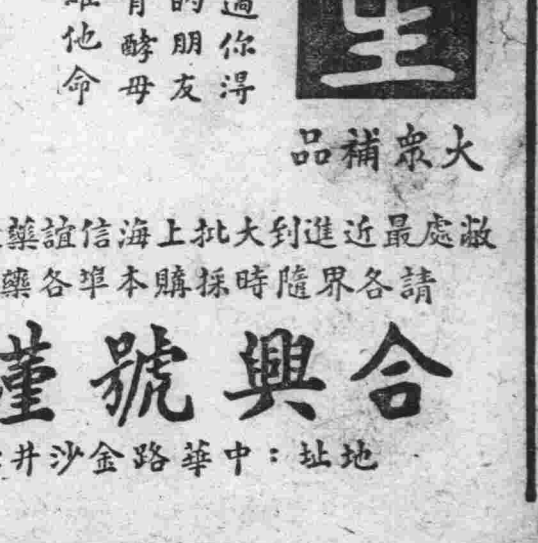 過你得
的朋友
有酵母
他命
生
大眾補品
敝處最近進到大批上海信誼藥
請各界隨時採購本埠各藥
合興號謹
地址：中華路金沙井